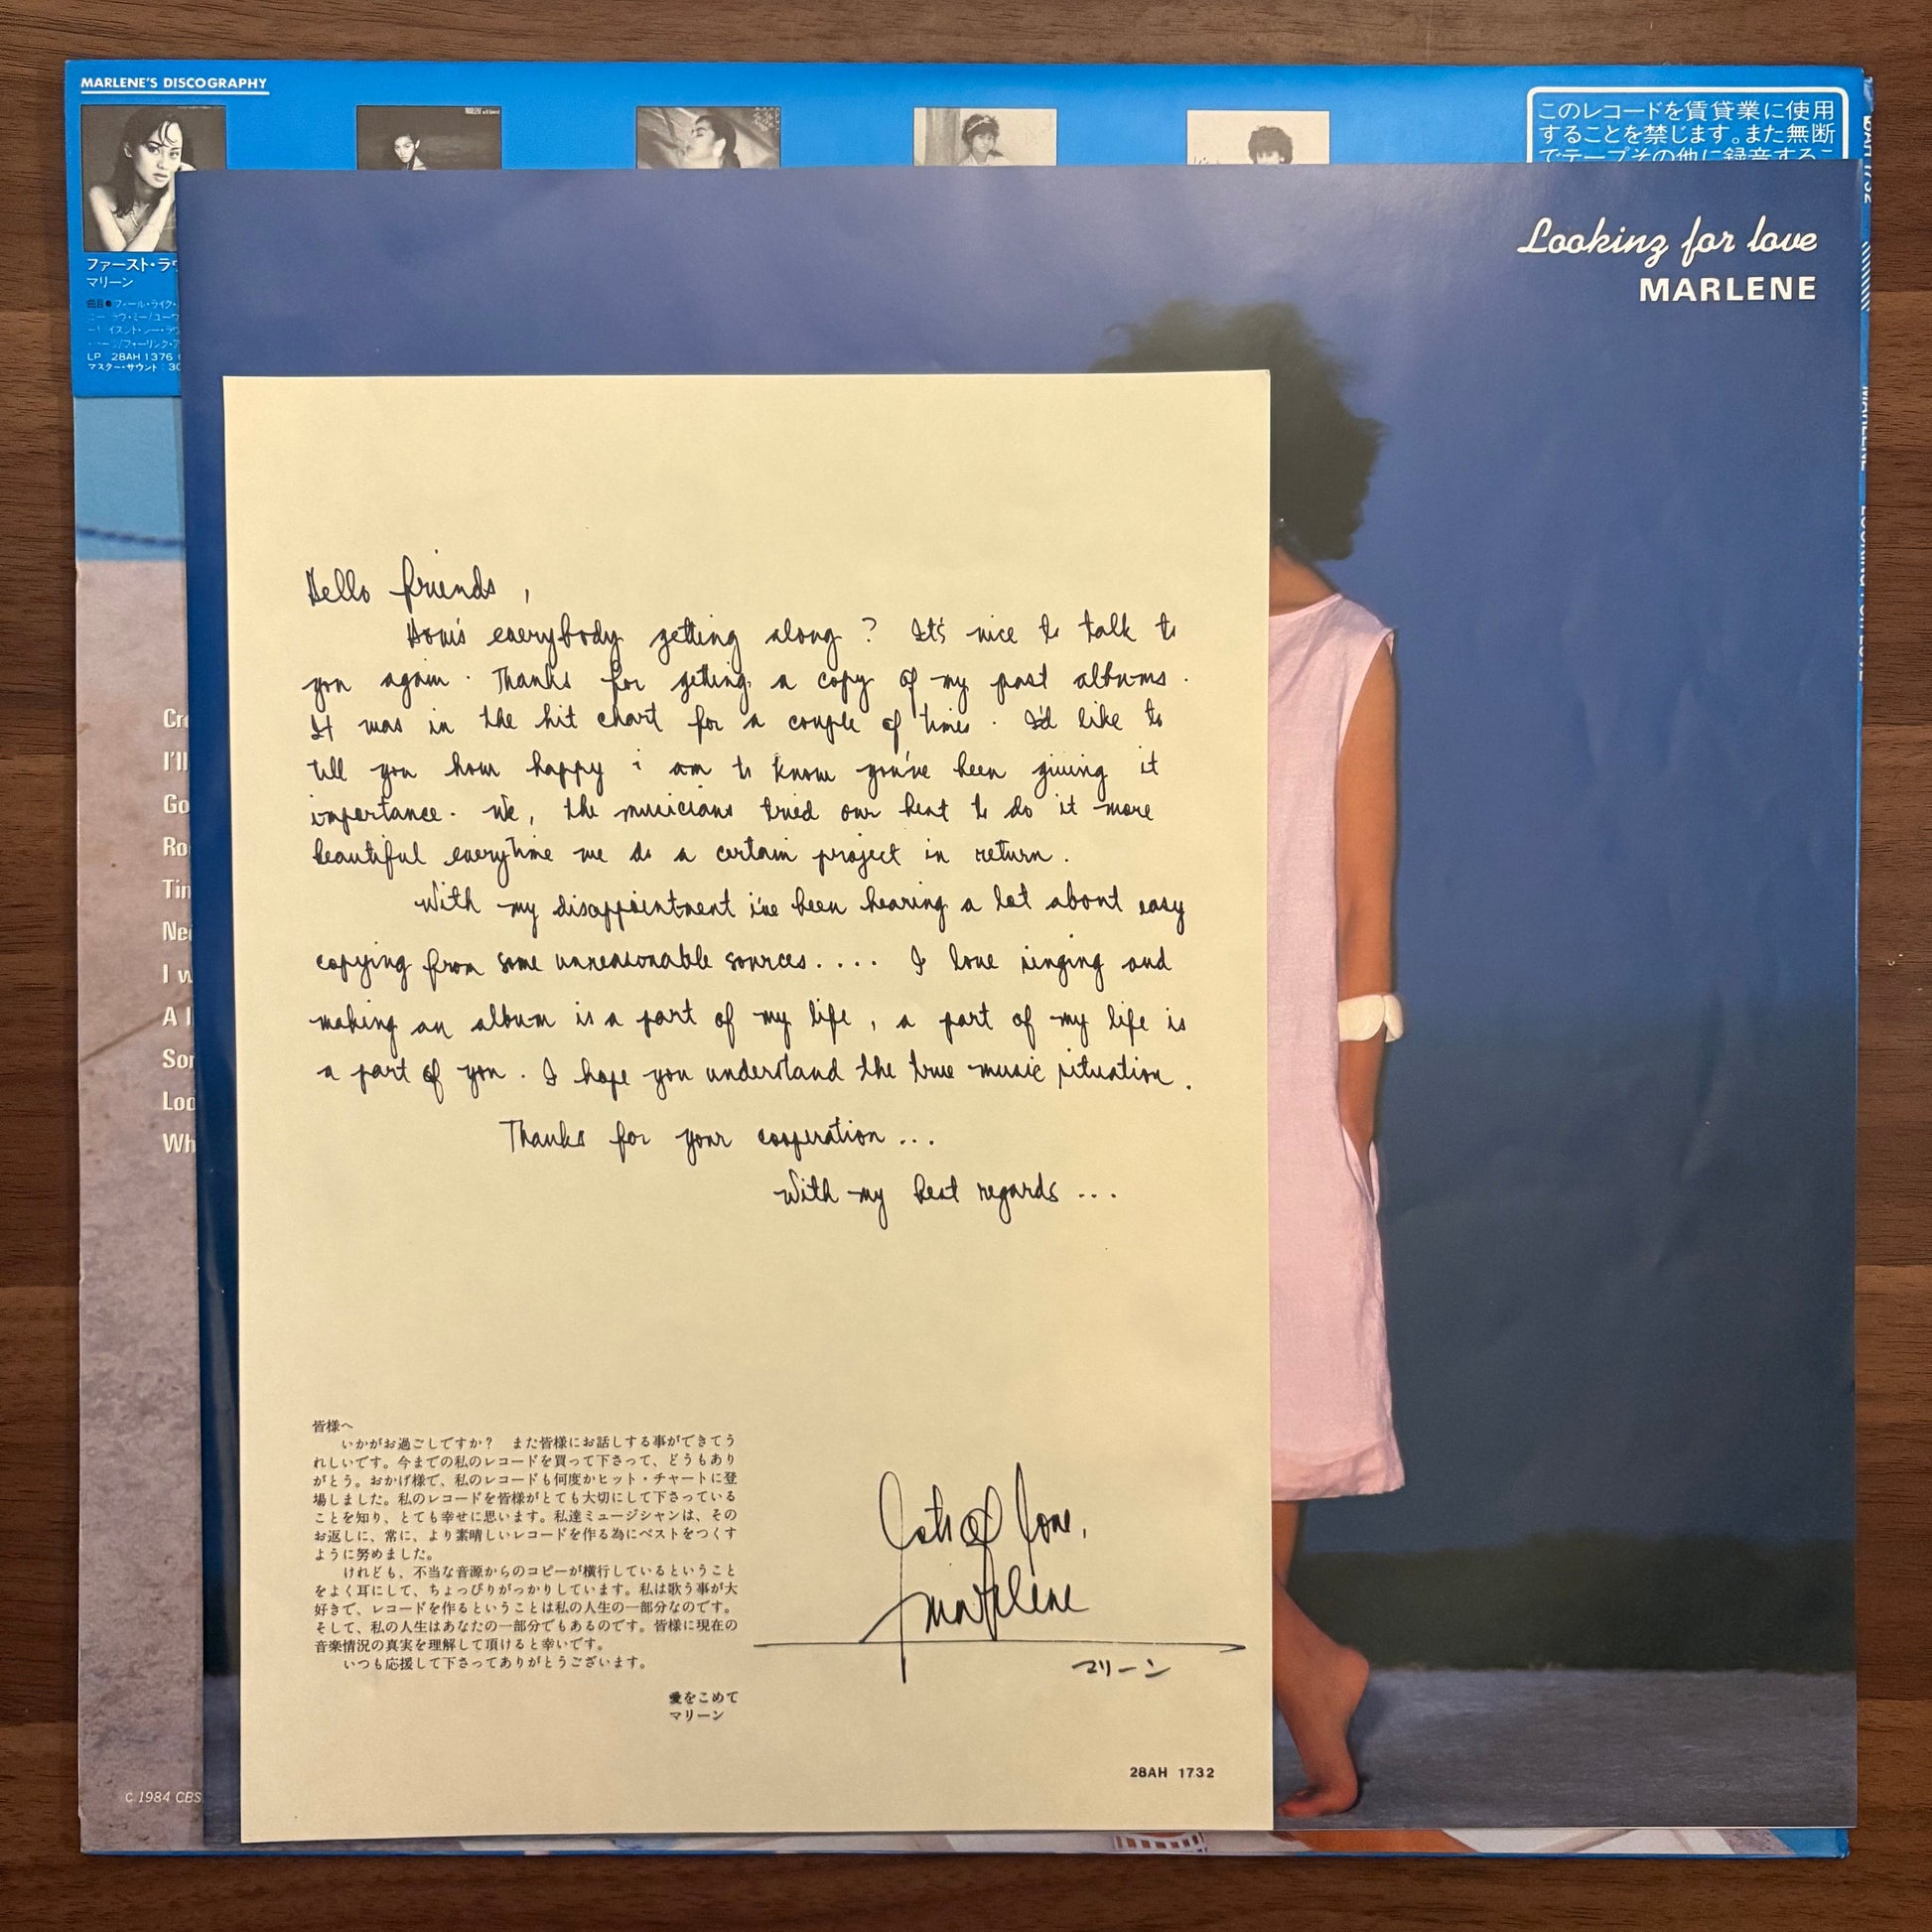 MARLENE'S DISCOGRAPHY
このレコードを賃貸業に使用
することを禁じます。また無断
でテープその他に録音するこ
ファースト・ラヴ
マリーン
LP 28AH 1376
マスター・サウント: 30
Looking for love
MARLENE
Hello friends,
How's everybody getting along? It's nice to talk to
you again. Thanks for getting a copy of my past albums.
It was in the hit chart for a couple of times. I'd like to
tell you how happy i am to know you've been giving it
importance. We, the musicians tried our best to do it more
beautiful everytime we do a certain project in return.
With my disappointment i've been hearing a lot about easy
copying from some unreasonable sources.... I love singing and
making an album is a part of my life, a part of my life is
a part of you. I hope you understand the true music situation.
Thanks for your cooperation...
With my best regards...
皆様へ
いかがお過ごしですか? また皆様にお話しする事ができてう
れしいです。今までの私のレコードを買って下さって、どうもあり
がとう。おかげ様で、私のレコードも何度かヒット・チャートに登
場しました。私のレコードを皆様がとても大切にして下さっている
ことを知り、とても幸せに思います。私達ミュージシャンは、その
お返しに、常に、より素晴しいレコードを作る為にベストをつくす
ように努めました。
けれども、不当な音源からのコピーが横行しているということ
をよく耳にして、ちょっぴりがっかりしています。私は歌う事が大
好きで、レコードを作るということは私の人生の一部分なのです。
そして、私の人生はあなたの一部分でもあるのです。皆様に現在の
音楽情況の真実を理解して頂けると幸いです。
いつも応援して下さってありがとうございます。
愛をこめて
マリーン
Lots of love,
Marlene
マリーン
28AH 1732
Cr
I'll
Go
Ro
Tin
Ne
I w
A l
Son
Loo
Wh
C 1984 CBS